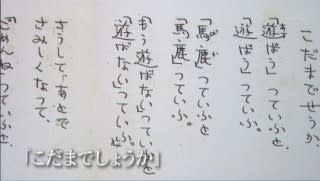 こだまでせうか
「遊ばう」つていふと
「遊ばう」つていふ。
「馬鹿」つていふと
「馬鹿」つていふ。
「もう遊ばない」つていふと
「遊ばない」つていふ。
さうして、あとで
さみしくなつて、
「ごめんね」つていふと
「こだまでしょうか」